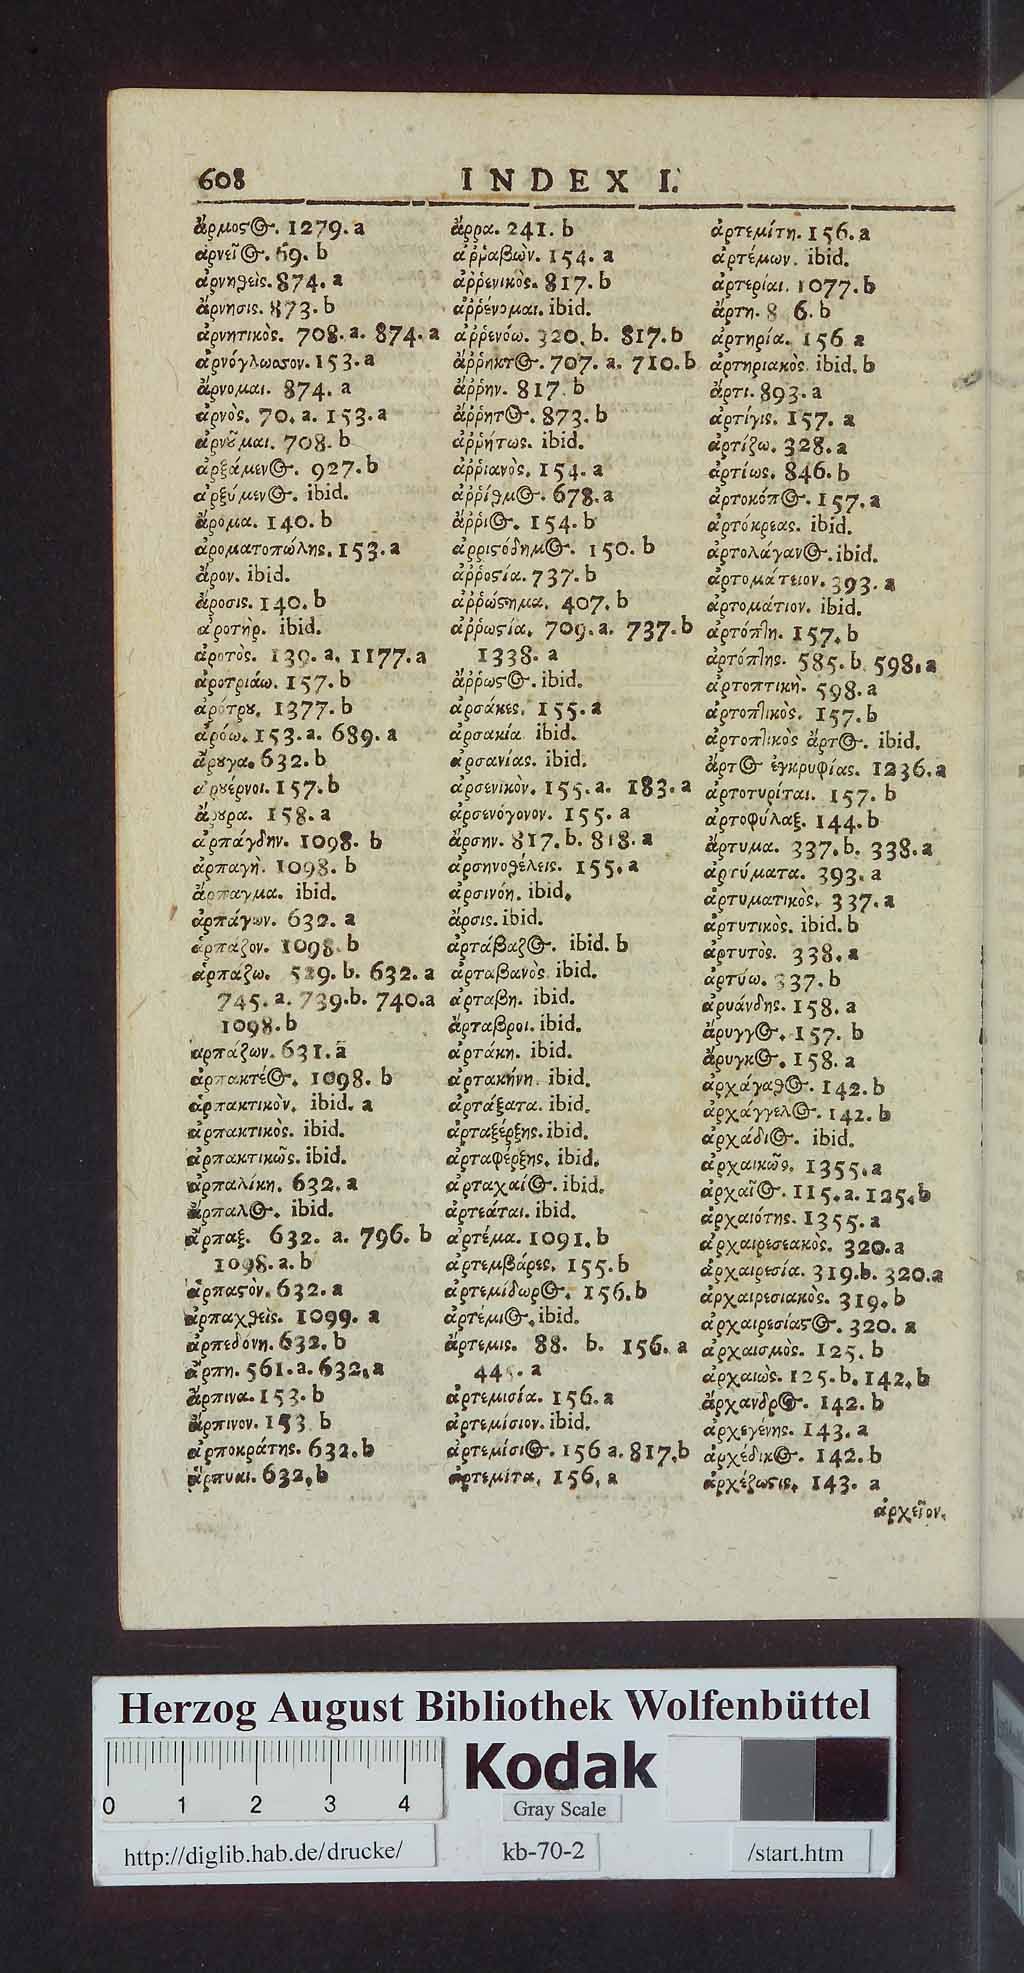 608 INDEX I.
ἄρμοςΘ. 1279. a
ἀρνεῖΘ. 69. b
ἀρνηθεὶς. 874. a
ἄρνησις. 873. b
ἀρνητικὸς. 708. a. 874. a
ἀρνόγλωσσον. 153. a
ἄρνομαι. 874. a
ἀρνὸς. 70. a. 153. a
ἀρνοῦμαι. 708. b
ἀρξάμενΘ. 927. b
ἀρξύμενΘ. ibid.
ἄρομα. 140. b
ἀροματοπώλης. 153. a
ἄρον. ibid.
ἄροσις. 140. b
ἀροτὴρ. ibid.
ἀροτὸς. 139. a. 1177. a
ἀροτριάω. 157. b
ἀρότρȣ. 1377. b
ἀρόω. 153. a. 689. a
ἄρȣγα. 632. b
ἀρȣέρνοι. 157. b
ἄρȣρα. 158. a
ἁρπάγδην. 1098. b
ἁρπαγὴ. 1098. b
ἅρπαγμα. ibid.
ἁρπάγων. 632. a
ἁρπάζον. 1098. b
ἁρπάζω. 529. b. 632. a
745. a. 739. b. 740. a
1098. b
ἁρπάζων. 631. a
ἁρπακτέΘ. 1098. b
ἁρπακτικὸν. ibid. a
ἁρπακτικὸς. ibid.
ἁρπακτικῶς. ibid.
ἁρπαλίκη. 632. a
ἅρπαλΘ. ibid.
ἅρπαξ. 632. a. 796. b
1098. a. b
ἁρπαςὸν. 632. a
ἁρπαχθεὶς. 1099. a
ἁρπεδόνη. 632. b
ἅρπη. 561. a. 632. a
ἄρπινα. 153. b
ἄρπινον. 153 b
ἁρποκράτης. 632. b
ἅρπυαι. 632. b
ἄρρα. 241. b
ἀῤῥαβὼν. 154. a
ἀῤῥενικὸς. 817. b
ἀῤῥένομαι. ibid.
ἀῤῥενόω. 320. b. 817. b
ἄῤῥηκτΘ. 707. a. 710. b
ἄῤῥην. 817. b
ἄῤῥητΘ. 873. b
ἀῤῥήτως. ibid.
ἀῤῥιανὸς. 154. a
ἀῤῥίθμΘ. 678. a
ἄῤῥιΘ. 154. b
ἀρριςόδημΘ. 150. b
ἀῤῥοςία. 737. b
ἀῤῥώςημα. 407. b
ἀῤῥωςία. 709. a. 737. b
1338. a
ἄῤῥωςΘ. ibid.
ἀρσάκες. 155. a
ἀρσακία ibid.
ἀρσανίας. ibid.
ἀρσενικὸν. 155. a. 183. a
ἀρσενόγονον. 155. a
ἄρσην. 817. b. 818. a
ἀρσηνοθέλεις. 155. a
ἀρσινόη. ibid.
ἄρσις. ibid.
ἀρτάβαζΘ. ibid. b
ἀρταβανὸς ibid.
ἀρταβη. ibid.
ἄρταβροι. ibid.
ἀρτάκη. ibid.
ἀρτακήνη. ibid.
ἀρτάξατα. ibid.
ἀρταξέρξης. ibid.
ἀρταφέρξης. ibid.
ἀρταχαίΘ. ibid.
ἀρτεάται. ibid.
ἀρτέμα. 1091. b
ἀρτεμβάρες. 155. b
ἀρτεμίδωρΘ. 156. b
ἀρτέμιΘ. ibid.
ἄρτεμις. 88. b. 156. a
a
ἀρτεμισία. 156. a
ἀρτεμίσιον. ibid.
ἀρτεμίσιΘ. 156 a. 817. b
ἀρτεμίτα. 156. a
ἀρτεμίτη. 156. a
ἀρτέμων. ibid.
ἀρτερίαι. 1077. b
ἄρτη. b
ἀρτηρία. 156 a
ἀρτηριακὸς. ibid. b
ἄρτι. 893. a
ἀρτίγις. 157. a
ἀρτίζω. 328. a
ἀρτίως. 846. b
ἀρτοκόπΘ. 157. a
ἀρτόκρεας. ibid.
ἀρτολάγανΘ. ibid.
ἀρτομάτειον. 393. a
ἀρτομάτιον. ibid.
ἀρτόπτη. 157. b
ἀρτόπτης. 585. b. 598. a
ἀρτοπτικὴ. 598. a
ἀρτοπτικὸς. 157. b
ἀρτοπτικὸς ἄρτΘ. ibid.
ἄρτΘ ἐγκρυφίας. 1236. a
ἀρτοτυρίται. 157. b
ἀρτοφύλαξ. 144. b
ἄρτυμα. 337. b. 338. a
ἀρτύματα. 393. a
ἀρτυματικὸς. 337. a
ἀρτυτικὸς. ibid. b
ἀρτυτὸς. 338. a
ἀρτύω. 337. b
ἀρυάνδης. 158. a
ἄρυγγΘ. 157. b
ἄρυγκΘ. 158. a
ἀρχάγαθΘ. 142. b
ἀρχάγγελΘ. 142. b
ἀρχάδιΘ. ibid.
ἀρχαικῶς. 1355. a
ἀρχαῖΘ. 115. a. 125. b
ἀρχαιότης. 1355. a
ἀρχαιρεσεακὸς. 320. a
ἀρχαιρεσία. 319. b. 320. a
ἀρχαιρεσιακὸς. 319. b
ἀρχαιρεσίαςΘ. 320. a
ἀρχαισμὸς. 125. b
ἀρχαιὼς. 125. b. 142. b
ἄρχανδρΘ. 142. b
ἀρχεγένης. 143. a
ἀρχέδικΘ. 142. b
ἀρχέζωςις. 143. a
ἀρχεῖον.
Herzog August Bibliothek Wolfenbüttel
0 1 2 3 4
Kodak
Gray Scale
http://diglib.hab.de/drucke/ kb-70-2 /start.htm